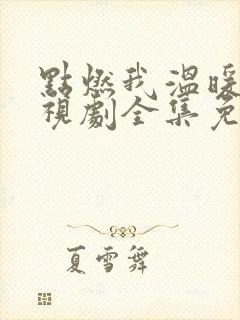 點燃我溫暖
視劇全集免
夏雪舞